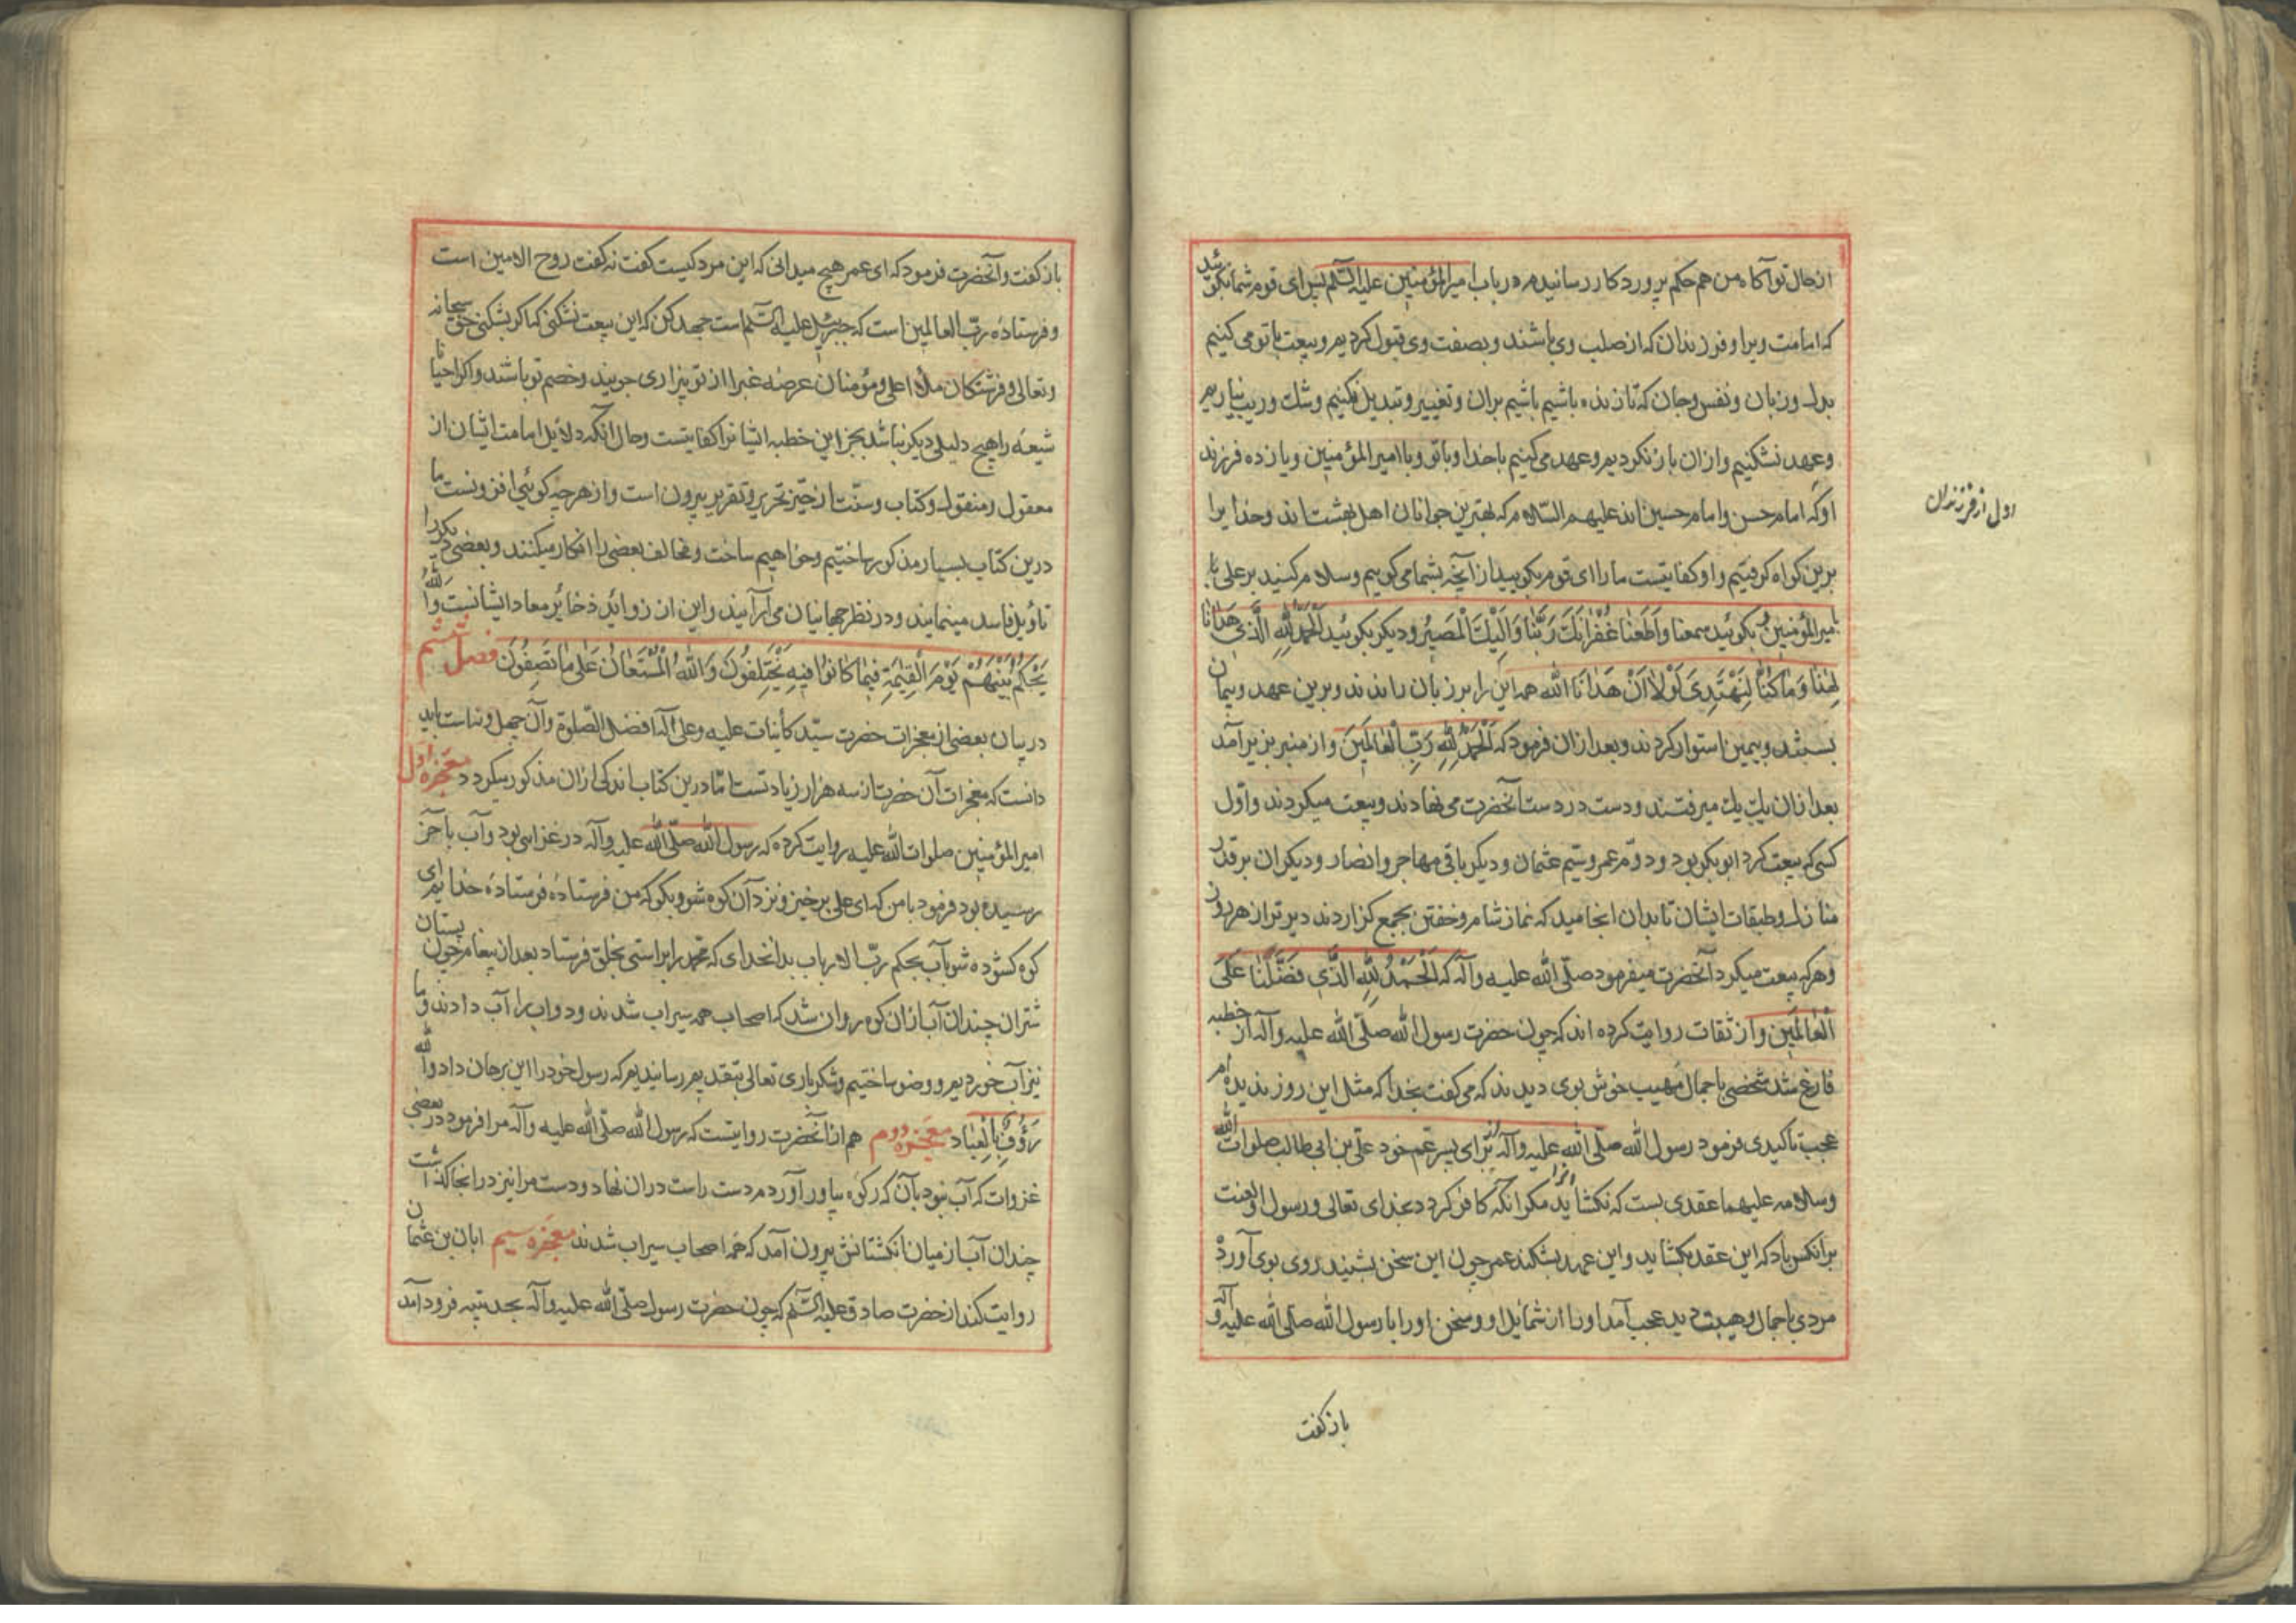 از حال تو آکاه من هم حکم پروردکار رسانیدم در باب امیرالمؤمنین علیه السّلم پس ای قوم شما بکوئید
که امامت ویرا و فرزندان که از صلب وی باشند و بصفت وی قبول کردیم و بیعت با تو می کنیم
بدل و زبان و نفس و جان که تا زنده باشیم باشیم بران و تغییر و تبدیل نکنیم و شک و ریب نیاریم
و عهد نشکنیم و از ان باز نکردیم و عهد می کنیم با خدا و با تو و با امیرالمؤمنین و یازده فرزند
اول از فرزندان
او که امام حسن و امام حسین اند علیهم السّلام که بهترین جوانان اهل بهشت اند و خدا یرا
برین کواه کرفتیم و او کفایتست ما را ای قوم بکویید از آنچه بشما می کویم و سلام کنید بر علی با
با میرالمؤمنین و بکوئید سمعنا وَاَطَعْنا غُفْرانَكَ رَبَّنا وَاِلَیْكَ الْمَصیرُ و دیکر بکوئید اَلْحَمْدُ لِلّهِ الَّذی هَدانا
لِهذا وَ ما کُنّا لِنَهْتَدِیَ لَوْلا اَنْ هَدانَا الله همه این را بر زبان راندند و برین عهد و پیمان
بستند و بیمین استوار کردند و بعد ازان فرمود که اَلْحَمْدُ لِلّهِ رَبِّ الْعالَمینَ و از منبر بزیر آمد
بعد ازان یک یک میرفتند و دست در دست آنحضرت می نهادند و بیعت میکردند و اول
کسی که بیعت کرد ابوبکر بود و دوم عمر و سیّم عثمان و دیکر باقی مهاجر و انصار و دیکران بر قدر
منازل و طبقات ایشان تا بدان انجامید که نماز شام و خفتن بجمع کزاردند دیرتر از هر روز
و هر که بیعت میکرد آنحضرت میفرمود صلّی الله علیه وآله که اَلْحَمْدُ لِلّهِ الَّذی فَضَّلَنا عَلَی
الْعالَمینَ و از ثقات روایت کرده اند که چون حضرت رسول الله صلّی الله علیه وآله از خطبه
فارغ شد شخصی با جمال مهیب خوش بوی دیدند که می کفت بخدا که مثل این روز ندیده ام
عجب تاکیدی فرمود رسول الله صلّی الله علیه وآله برای پسر عم خود علی بن ابی طالب صلوات الله
وسلامه علیهما عقدی بست که نکشاید انرا مکر انکه کافر کردد بخدای تعالی و رسول او لعنت
بر انکس باد که این عقد بکشاید و این عهد بشکند عمر چون این سخن بشنید روی بوی آورد
مردی با جمال و هیبت دید عجب آمد او را از شمایل او و سخن او را با رسول الله صلّی الله علیه وآله
باز کفت
باز کفت و آنحضرت فرمود که ای عمر هیچ میدانی که این مرد کیست کفت نه کفت روح الامین است
و فرستادهٔ ربّ العالمین است که جبرئیل علیه السّلم است جهد کن که این بیعت نشکنی کما کو بشکنی حق سبحانه
و تعالی و فرشتکان ملأ اعلی و مؤمنان عرصه غبرا از تو بیزاری جویند و خصم تو باشند و اکر احیانا
شیعه را هیچ دلیلی دیکر نباشد بجز این خطبه ایشانرا کفایتست و حال آنکه دلایل امامت ایشان از
معقول و منقول و کتاب و سنّت از حیّز تحریر و تقریر بیرون است و از هر چه کوئی افزونست ما
درین کتاب بسیار مذکور ساختیم و خواهیم ساخت و مخالف بعضی را انکار میکنند و بعضی دیکر را
تأویل فاسد مینمایند و در نظر جهانیان می آرآیند و این از زوائد ذخائر معاد ایشانست وَالله
یَحْکُمُ بَیْنَهُمْ یَوْمَ الْقِیمَةِ فیما کانُوا فیهِ یَخْتَلِفُونَ وَاللهُ الْمُسْتَعانُ عَلی ما تَصِفُونَ فصل ششم
در بیان بعضی از معجزات حضرت سیّد کاینات علیه وعلی آله افضل الصّلوة وآن چهل و نه است باید
دانست که معجزات آن حضرت از سه هزار زیادتست امّا درین کتاب اندکی ازان مذکور میکردد معجزه اول
امیرالمؤمنین صلوات الله علیه روایت کرده که رسول الله صلّی الله علیه وآله در غزاسی بود و آب بآخر
رسیده بود فرمود با من که ای علی برخیز و نزد آن کوه شو و بکو که من فرستادهٔ فرستادهٔ خدایم ای
کوه کشوده شو بآب بحکم ربّ الارباب بدانخدای که محمد را براستی بخلق فرستاد بعد ان پیغام چون پستان
شتران چندان آب ازان کوه روان شد که اصحاب همه سیراب شدند و دواب را آب دادند و ما
نیز آب خوردیم و وضو ساختیم و شکر باری تعالی بتقدیم رسانیدیم که رسول خود را این برهان داد والله
رَؤُفٌ بِالْعِباد معجزه دوم هم از آنحضرت روایتست که رسول الله صلّی الله علیه وآله مرا فرمود در بعضی
غزوات که آب نبود بآن که رکوه بیاور آوردم دست راست دران نهاد و دست مرا نیز درانجا کذاشت
چندان آب از میان انکشتانش بیرون آمد که همه اصحاب سیراب شدند معجزه سیم ابان بن عثمان
روایت کند از حضرت صادق علیه السّلم که چون حضرت رسول صلّی الله علیه وآله بحدیبیه فرود آمد